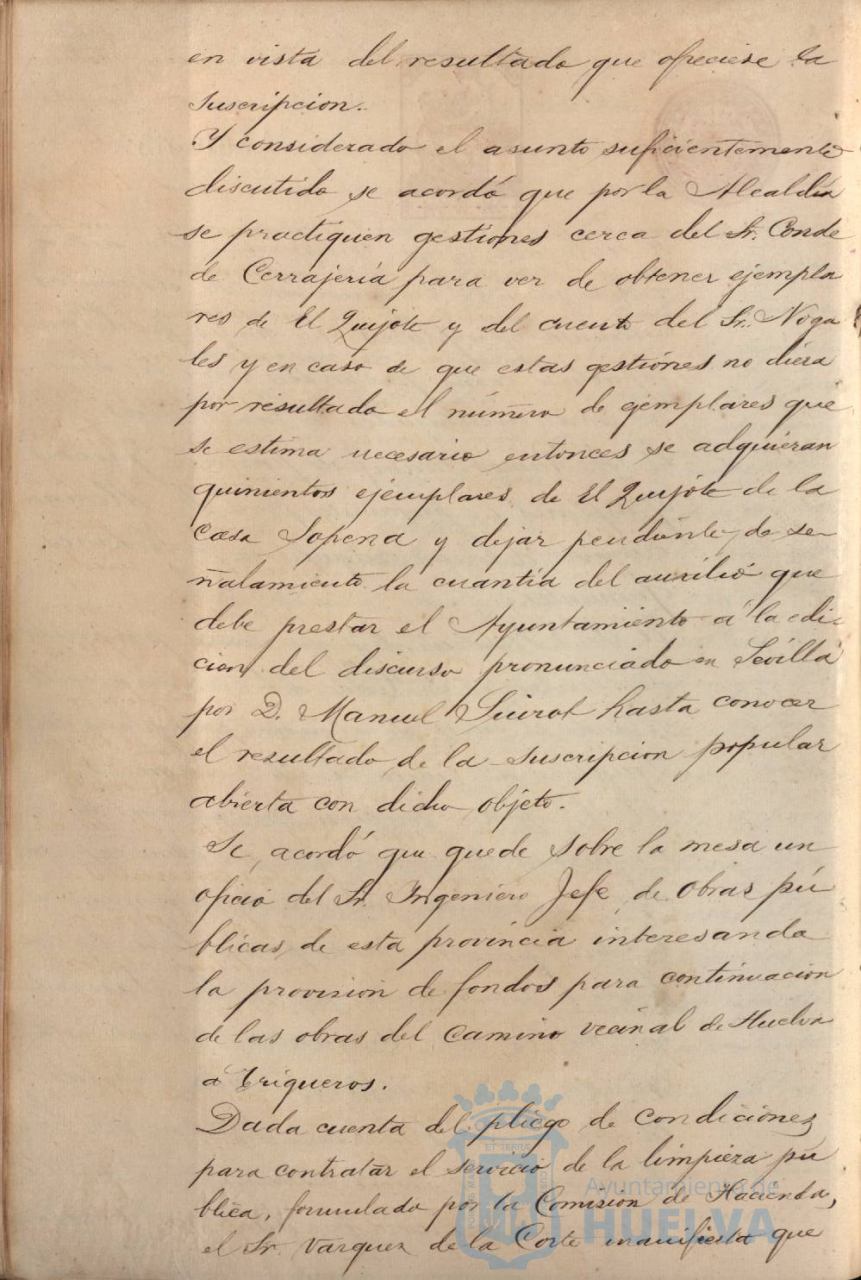 en vista del resultado que ofreciese la
suscripcion.
Y considerado el asunto suficientemente
discutido se acordó que por la Alcaldía
se practiquen gestiones cerca del Sr. Conde
de Cerrajería para ver de obtener ejempla
res de El Quijote y del cuento del Sr. Noga
les y en caso de que estas gestiones no diera
por resultado el número de ejemplares que
se estima necesario entonces se adquieran
quinientos ejemplares de El Quijote de la
Casa Sopena y dejar pendiente de se
ñalamiento la cuantía del auxilio que
debe prestar el Ayuntamiento á la edi-
cion del discurso pronunciado en Sevilla
por D. Manuel Siurot hasta conocer
el resultado de la suscripcion popular
abierta con dicho objeto.
Se acordó que quede sobre la mesa un
oficio del Sr. Ingeniero Jefe de Obras pú
blicas de esta provincia interesando
la provision de fondos para continuacion
de las obras del camino vecinal de Huelva
á Trigueros.
Dada cuenta del pliego de condiciones
para contratar el servicio de la limpieza pú
blica, formulado por la Comision de Hacienda,
el Sr. Vazquez de la Corte manifiesta que
Ayuntamiento de
HUELVA